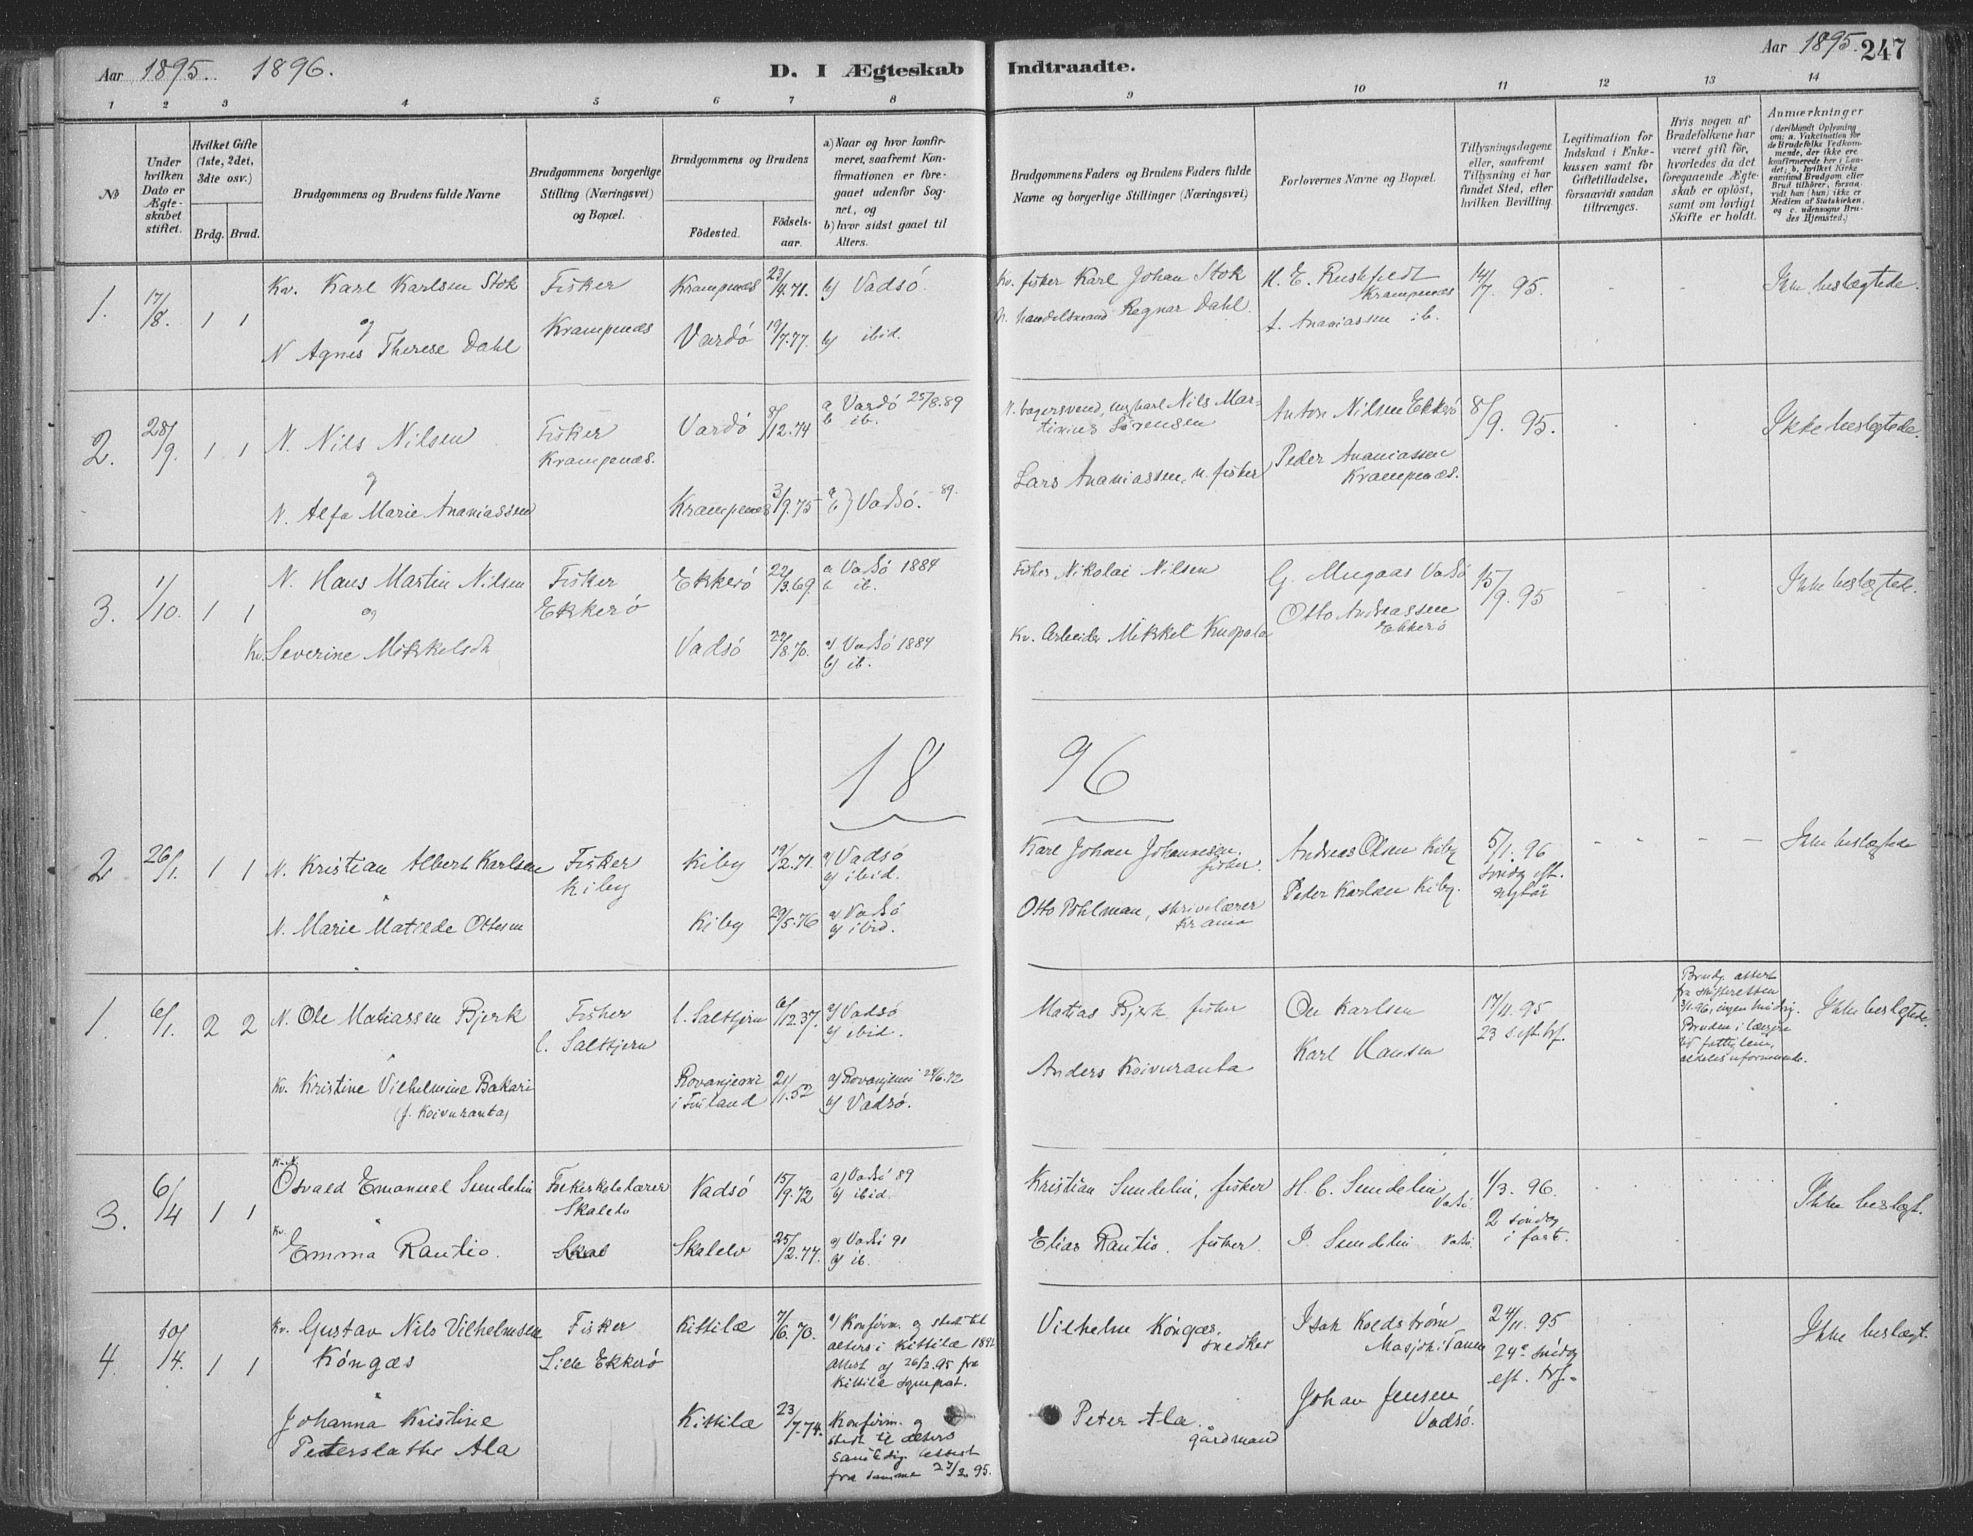 Aar 1895. 1896.
D. I Ægteskab Indtraadte.
Aar 1895. 247
1 2 3 4 5 6 7 8 9 10 11 12 13 14
No
Under hvilken Dato er Ægteskabet stiftet.
Hvilket Gifte (1ste, 2det, 3die osv.)
Brdg. Brud.
Brudgommens og Brudens fulde Navne
Brudgommens borgerlige Stilling (Næringsvei) og Bopæl.
Brudgommens og Brudens
Födested.
Födselsaar.
a) Naar og hvor konfirmeret, saafremt Konfirmationen er foregaaet udenfor Sognet, og
b) hvor sidst gaaet til Alters.
Brudgommens Faders og Brudens Faders fulde Navne og borgerlige Stillinger (Næringsvei)
Forlovernes Navne og Bopæl.
Tillysningsdagene eller, saafremt Tillysning ei har fundet Sted, efter hvilken Bevilling.
Legitimation for Indskud i Enkekassen samt for Giftetilladelse, forsaavidt saadan tiltrænges.
Hvis nogen af Brudefolkene har været gift för, hvorledes da det foregaaende Ægteskab er oplöst, samt om lovligt Skifte er holdt.
Anmærkninger
(deriblandt Oplysning om: a. Vakcination for de Brudefolks Vedkommende, der ikke ere konfirmerede her i Landet; b. hvilket Kirkesamfund Brudgom eller Brud tilhörer, forsaavidt han (hun) ikke er Medlem af Statskirken, og c. udensogns Brudes Hjemsted.)
1. 17/8. 1 1 Kv. Karl Karlsen Stok Fisker Krampenæs 23/4.71. b) Vadsö. Kv. fisker Karl Johan Stok H. E. Rushfeldt Krampenæs 14/7. 95. Ikke beslægtede.
og Krampenæs
N Agnes Therese Dahl Vardö 19/7.77. b) ibid. N. handelsmand Regnar Dahl. A. Ananiassen ib.
2. 28/9. 1 1 N. Nils Nilsen Fisker Krampenæs. Vardö 8/12.74 a Vardö 25/8.89 b ib. N. bagersvend, ungkarl Nils Martinius Sörensen Anton Nilsen Ekkerö 8/9. 95. Ikke beslegtede.
og
N. Alfa Marie Ananiassen Krampenæs 3/9.75 a b } Vadsö. -89. Lars Ananiassen, n. fisker Peder Ananiassen Krampenæs.
3. 1/10. 1 1 N. Hans Martin Nilsen Fisker Ekkerö Ekkerö 22/3.69. a Vadsö 1884 b ib. Fisker Nikolai Nilsen G. Mugaas Vadsö 15/9. 95 Ikke beslægtede.
og
Kv. Severine Mikkelsdt Vadsö 22/8.70. a) Vadsö 1884 b) ib. Kv. Arbeider Mikkel Knopala Otto Andreassen Ekkerö
18 96
2 26/1. 1 1 N. Kristian Albert Karlsen Fisker Kiby Kiby 19/2.71 a) Vadsö b) ibid. Karl Johan Johannesen. fisker. Andreas Olsen Kiby 5/1. 96 Sönda eft. nytår Ikke beslegtede
"
N. Marie Matilde Ottesen Kiby 29/5.76 a) Vadsö b) ibid. Otto Pohlman, skrivelærer Peder Karlsen Kiby.
1. 6/1. 2 2 N. Ole Matiassen Bjerk Fisker l. Saltkjern l. Saltkjern 6/12.37. a) Vadsö b) ibid. Matias Bjerk fisker Ole Karlsen 17/11. 95 23 s. eft. trf. Brudg. attest fra skifteretten Ikke beslegtede.
"
Kv. Kristine Vilhelmine Bakari (f. Koivuranta) Rovanjemi i Finland 21/1.52 a) Rovanjemi 24/6.72 b) Vadsö. Anders Koivuranta Karl Hansen
3. 6/4 1 1 Kv. N. Osvald Emanuel Sundelin Folkeskolelærer Skalelv Vadsö 15/9.72 a) Vadsö 89 b) ibid. Kristian Sundelin, fisker H. C. Sundelin Vadsö 1/3. 96. 2 söndag i fast. Ikke beslegt.
"
Kv. Emma Rautio. Skal Skalelv 25/2.77. a) Vadsö 91 b) ib. Elias Rautio. fisker. J. Sundelin Vadsö.
4. 10/4. 1 1 Kv. Gustav Nils Vilhelmsen Köngæs Fisker Lille Ekkerö Kittilæ 7/6.70. a) Konfirm. og stedt til alters i Kittilæ 1892 Attest af 26/2.95 fra Kittilæ sognepat. Vilhelm Köngæs, snedker Isak Koldström 24/11. 95 24e söndag eft. trf. Ikke beslægt.
"
Johanna Kristine Petersdatter Ala Kittilæ 23/7.74. Konfirm. og stedt til alters samtidig attest fra samme 27/2 95. Peter Ala. gårdmand Johan Jensen Vadsö.